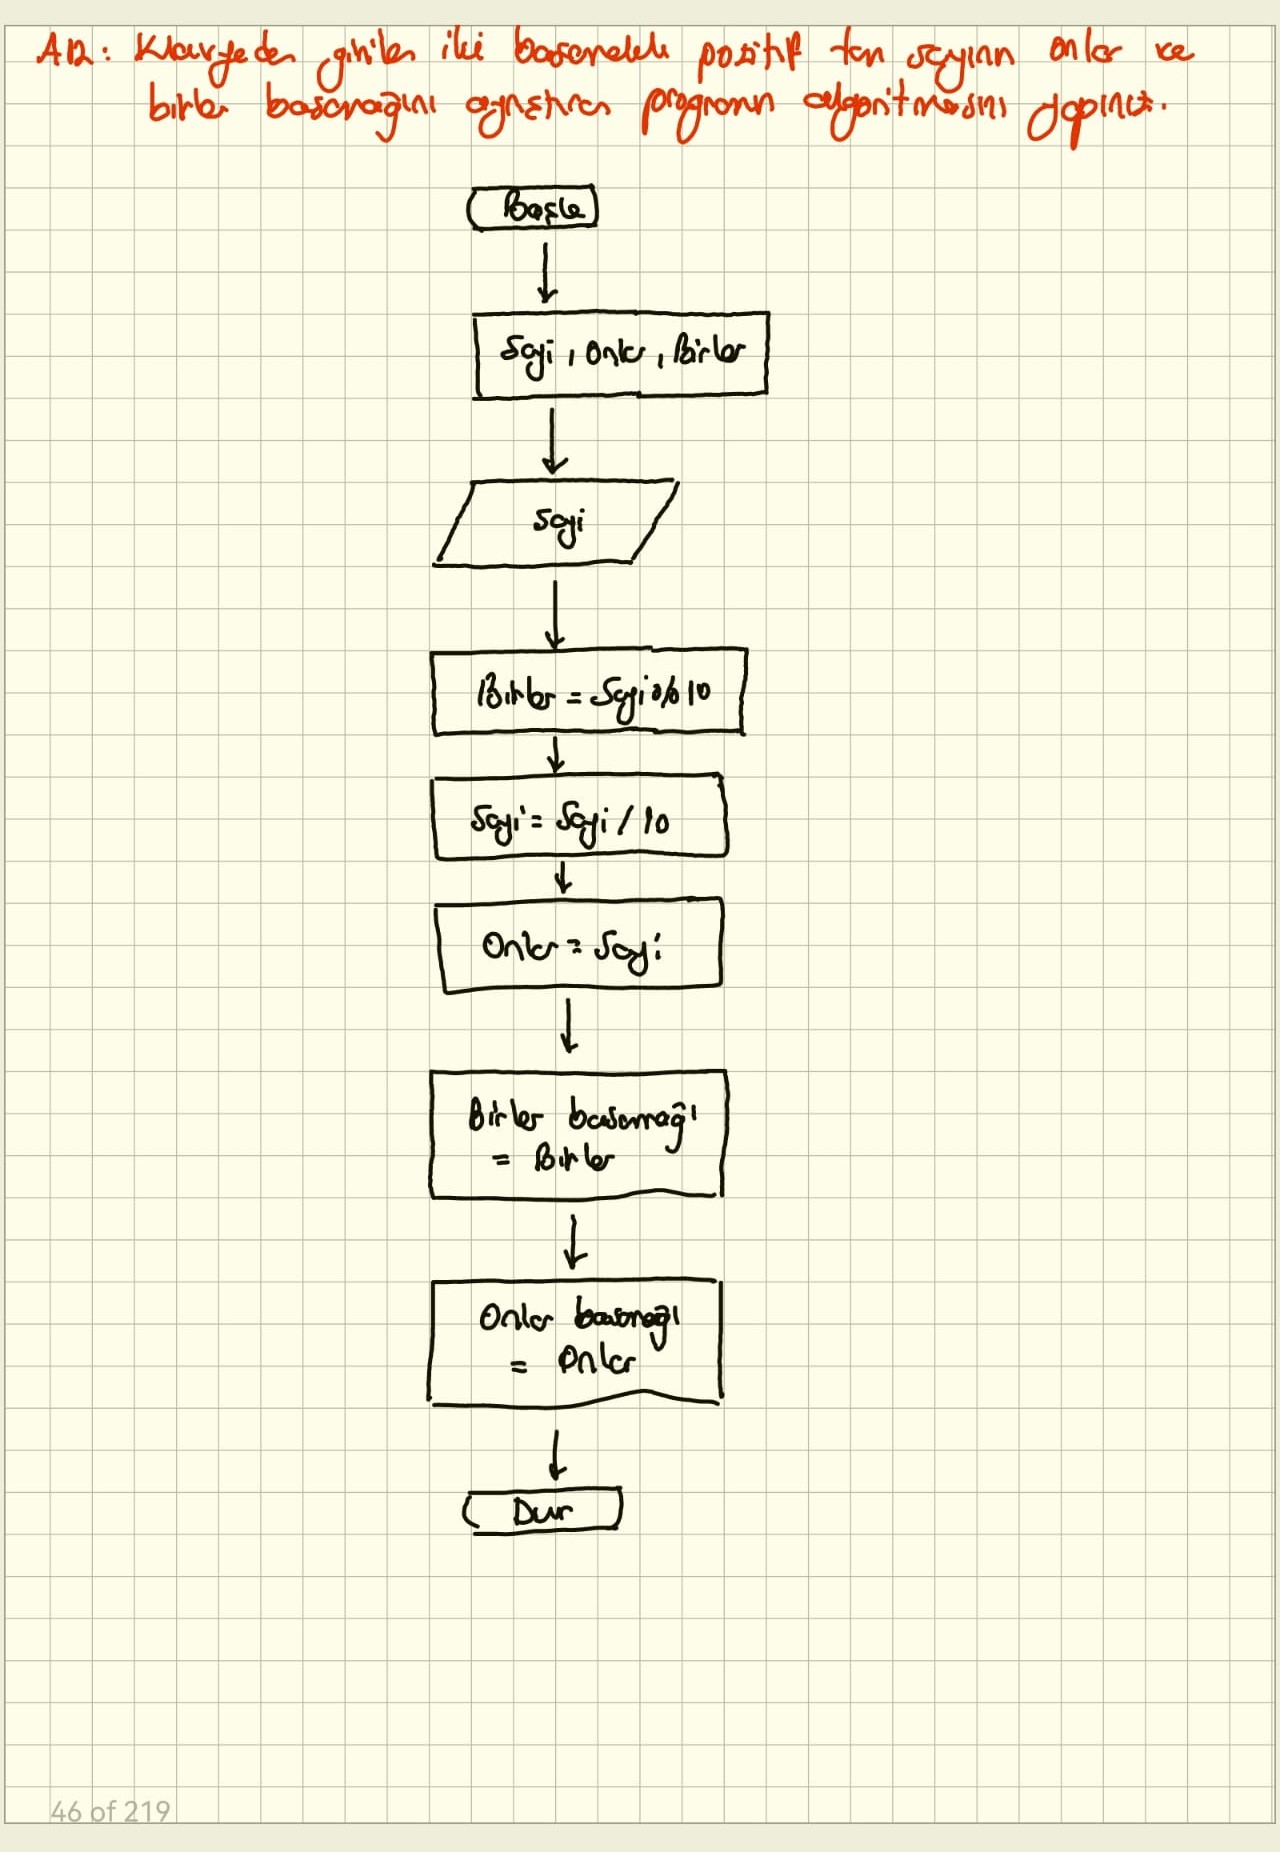 A12: Klavyeden girilen iki basamaklı pozitif tam sayının onlar ve
birler basamağını ayrıştıran programın algoritmasını yapınız.
Başla
Sayi, Onlar, Birler
Sayi
Birler = Sayi % 10
Sayi = Sayi / 10
Onlar = Sayi
Birler basamağı
= Birler
Onlar basamağı
= Onlar
Dur
46 of 219